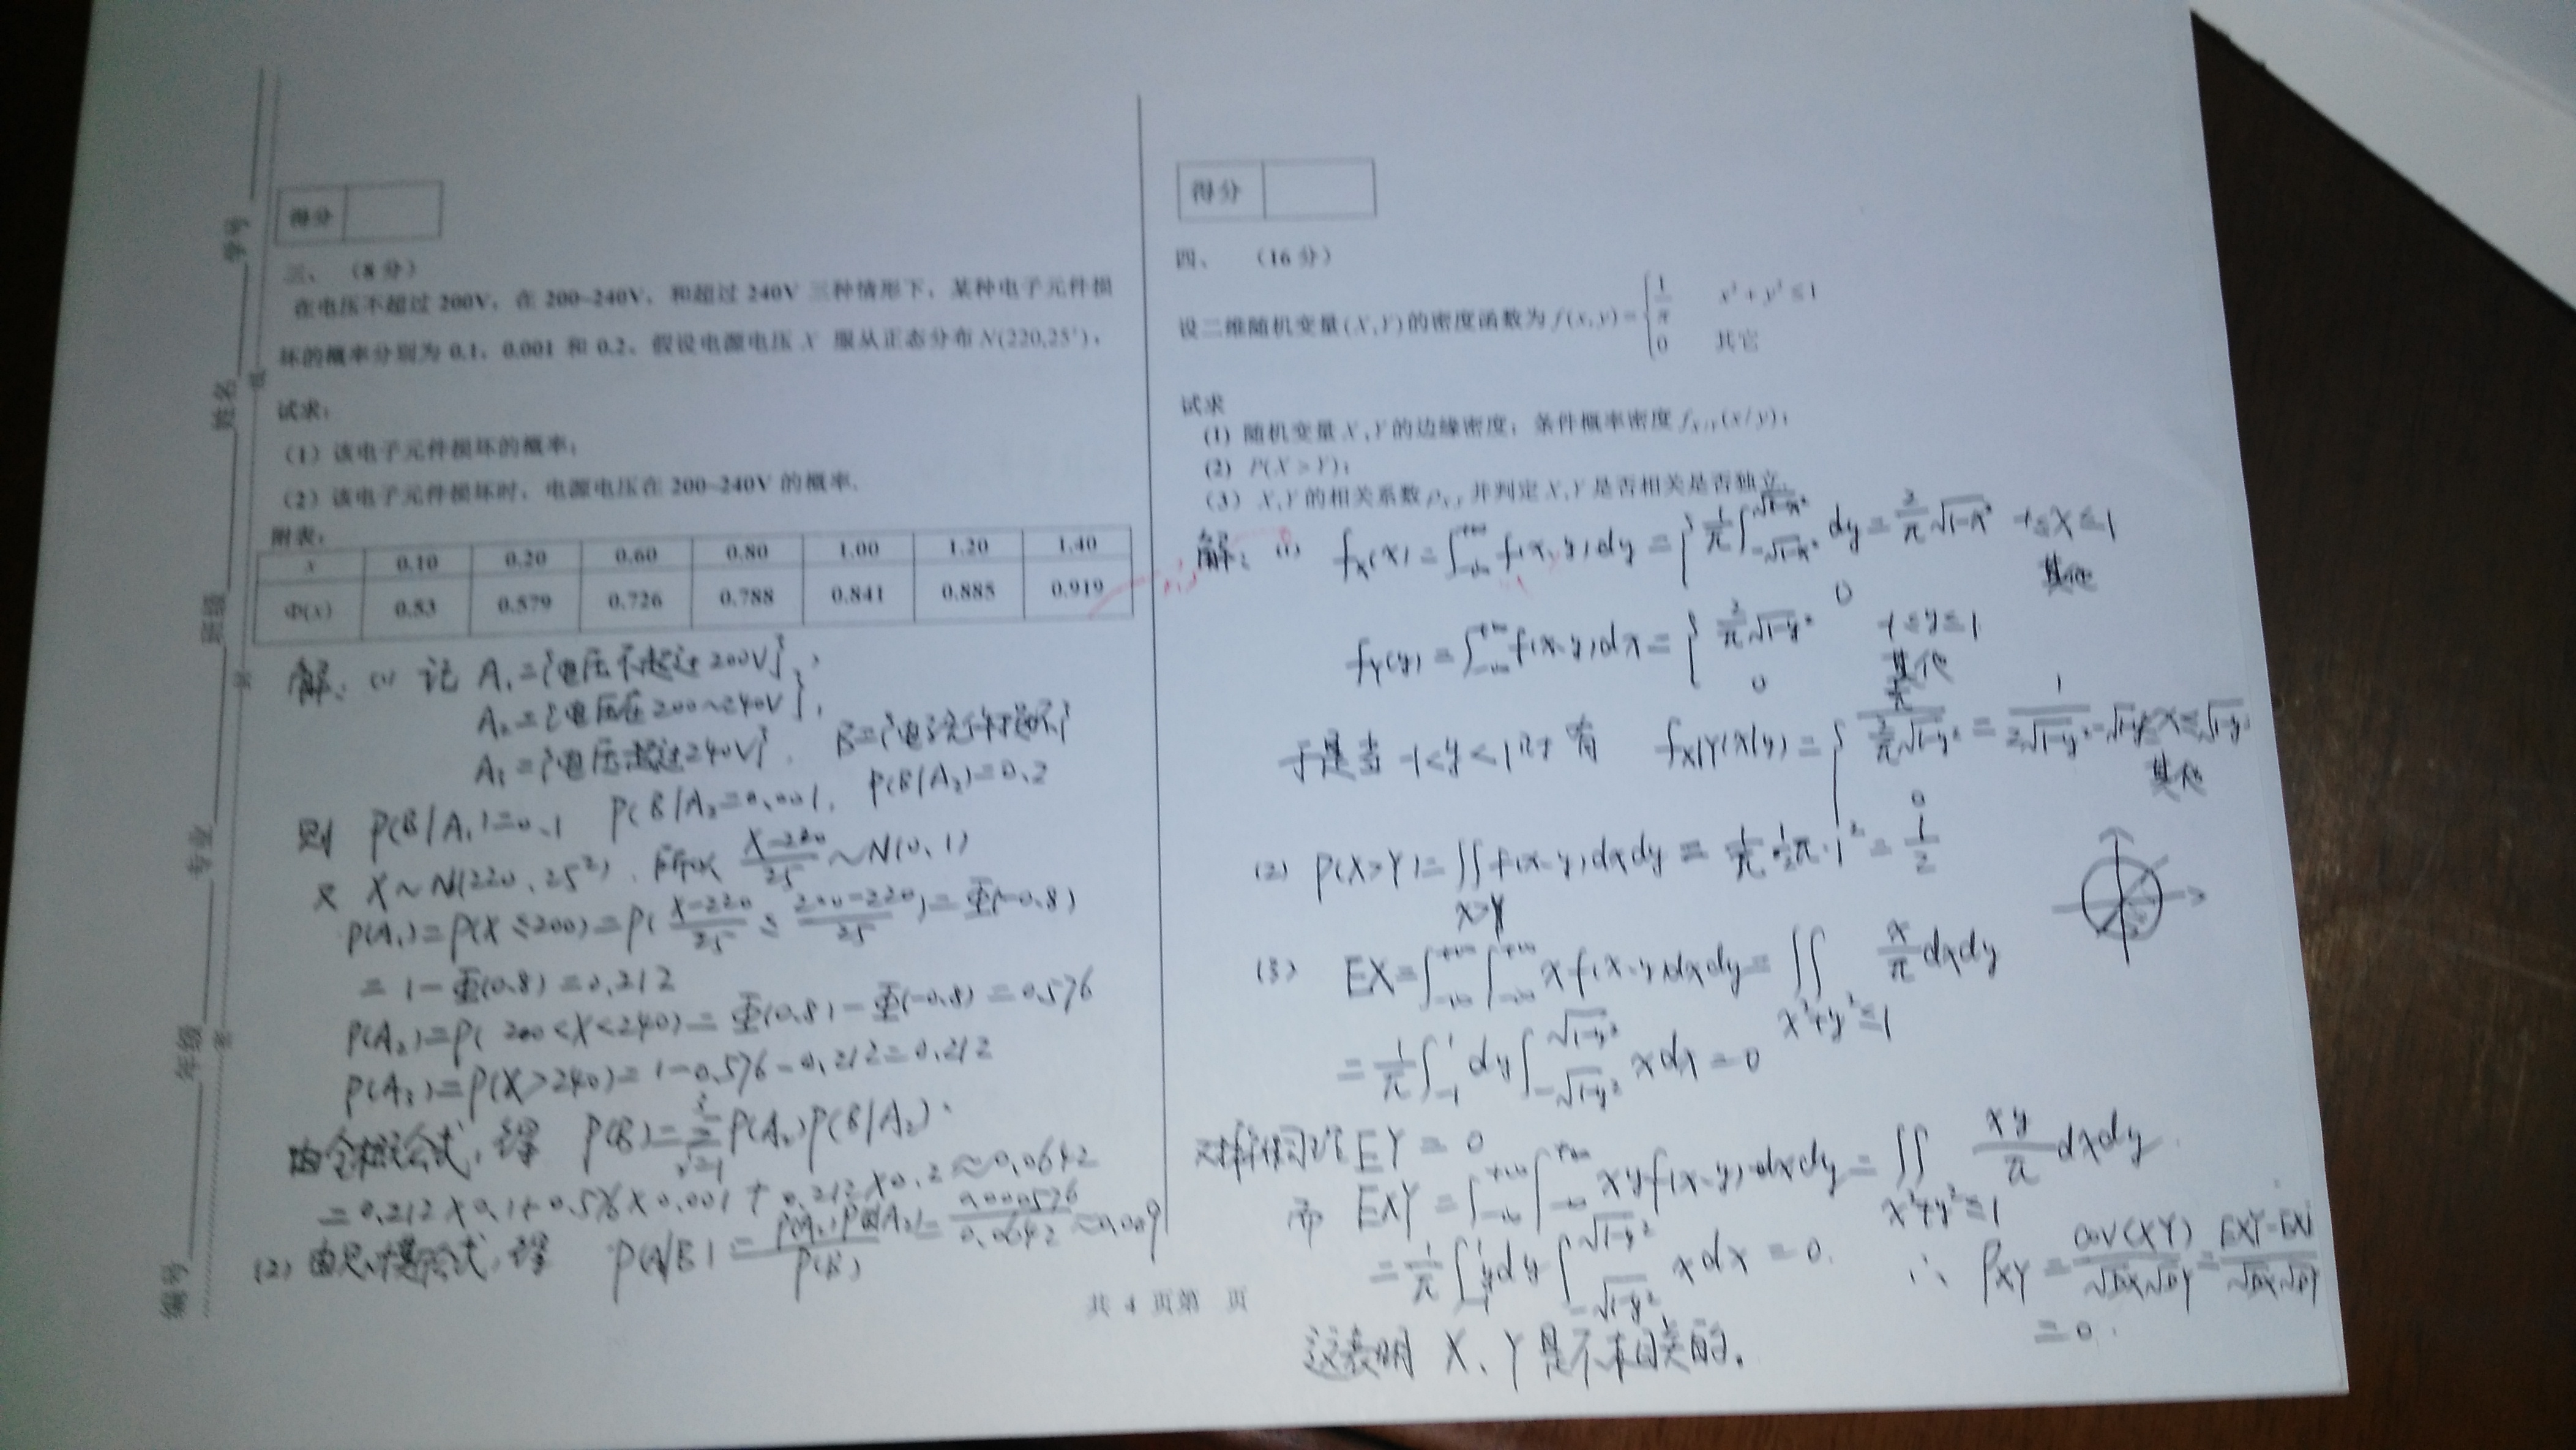 学号
姓名
班级
专业
年级
编号
线
封
密
得分
三、 （8 分）
在电压不超过 200V，在 200~240V，和超过 240V 三种情形下，某种电子元件损
坏的概率分别为 0.1、0.001 和 0.2。假设电源电压 X 服从正态分布 N(220,25²)，
试求：
（1）该电子元件损坏的概率；
（2）该电子元件损坏时，电源电压在 200~240V 的概率.
附表：
x 0.10 0.20 0.60 0.80 1.00 1.20 1.40
Φ(x) 0.53 0.579 0.726 0.788 0.841 0.885 0.919
解：(1) 记 A₁={电压不超过200V},
A₂={电压在200~240V},
A₃={电压超过240V}, B={电子元件损坏}
则 P(B|A₁)=0.1 P(B|A₂=0.001, P(B|A₃)=0.2
又 X~N(220, 25²), 所以 (X-220)/25 ~N(0,1)
P(A₁)=P(X≤200)=P( (X-220)/25 ≤ (200-220)/25 )=Φ(-0.8)
=1-Φ(0.8)=0.212
P(A₂)=P( 200<X<240)=Φ(0.8)-Φ(-0.8)=0.576
P(A₃)=P(X>240)=1-0.576-0.212=0.212
由全概公式, 得 P(B)=∑ᵢ₌₁³P(Aᵢ)P(B|Aᵢ).
=0.212×0.1+0.576×0.001+0.212×0.2≈0.0642
(2) 由贝叶斯公式, 得 P(A₂|B)= P(A₂)P(B|A₂)/P(B) = 0.000576/0.0642 ≈0.009
得分
四、 （16 分）
设二维随机变量(X,Y)的密度函数为 f(x,y)={ 1/π x²+y²≤1
0 其它
试求
（1）随机变量 X,Y 的边缘密度；条件概率密度 f_{X/Y}(x/y)；
（2）P(X>Y)；
（3）X,Y 的相关系数 ρ_{X,Y} 并判定 X,Y 是否相关是否独立.
解：(1) f_X(x)=∫_{-∞}^{+∞} f(x,y)dy={ 1/π ∫_{-√(1-x²)}^{√(1-x²)} dy=2/π √(1-x²) -1≤x≤1
0 其他
f_Y(y)=∫_{-∞}^{+∞} f(x,y)dx={ 2/π √(1-y²) -1≤y≤1
0 其他
于是当 -1<y<1时有 f_{X|Y}(x|y)={ (1/π)/(2/π √(1-y²)) = 1/(2√(1-y²)) -√(1-y²)≤x≤√(1-y²)
0 其他
(2) P(X>Y)=∬_{x>y} f(x,y)dxdy = 1/π·1/2π·1²=1/2
(3) EX=∫_{-∞}^{+∞}∫_{-∞}^{+∞} x f(x,y)dxdy=∬_{x²+y²≤1} x/π dxdy
=1/π ∫_{-1}^{1} dy∫_{-√(1-y²)}^{√(1-y²)} xdx=0
EY=0
而 EXY=∫_{-∞}^{+∞}∫_{-∞}^{+∞} xyf(x,y)dxdy=∬_{x²+y²≤1} xy/π dxdy
=1/π ∫_{-1}^{1} ydy∫_{-√(1-y²)}^{√(1-y²)} xdx=0. ∴ ρ_{XY}= cov(XY)/(√DX√DY)
=0.
这表明 X、Y是不相关的.
共 4 页第 页